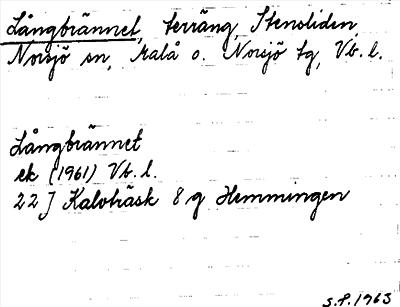 Långbrännet, terräng, Stensliden,
Norsjö sn, Malå o. Norsjö tg, Vb. l.
Långbrännet
ek (1961) Vb. l.
22 J Kalvträsk 8 g Hemmingen
S.P. 1963